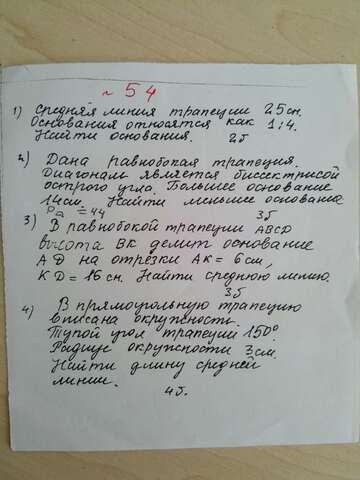 № 54
1) Средняя линия трапеции 25см.
Основания относятся как 1:4.
Найти основания. 2б
2) Дана равнобокая трапеция.
Диагональ является биссектрисой
острого угла. Большее основание
14см. Найти меньшее основание
Pa = 44 3б
3) В равнобокой трапеции ABCD
высота BK делит основание
AD на отрезки AK = 6см,
KD = 16см. Найти среднюю линию.
3б
4) В прямоугольную трапецию
вписана окружность.
Тупой угол трапеции 150°.
Радиус окружности 3см.
Найти длину средней
линии.
4б.